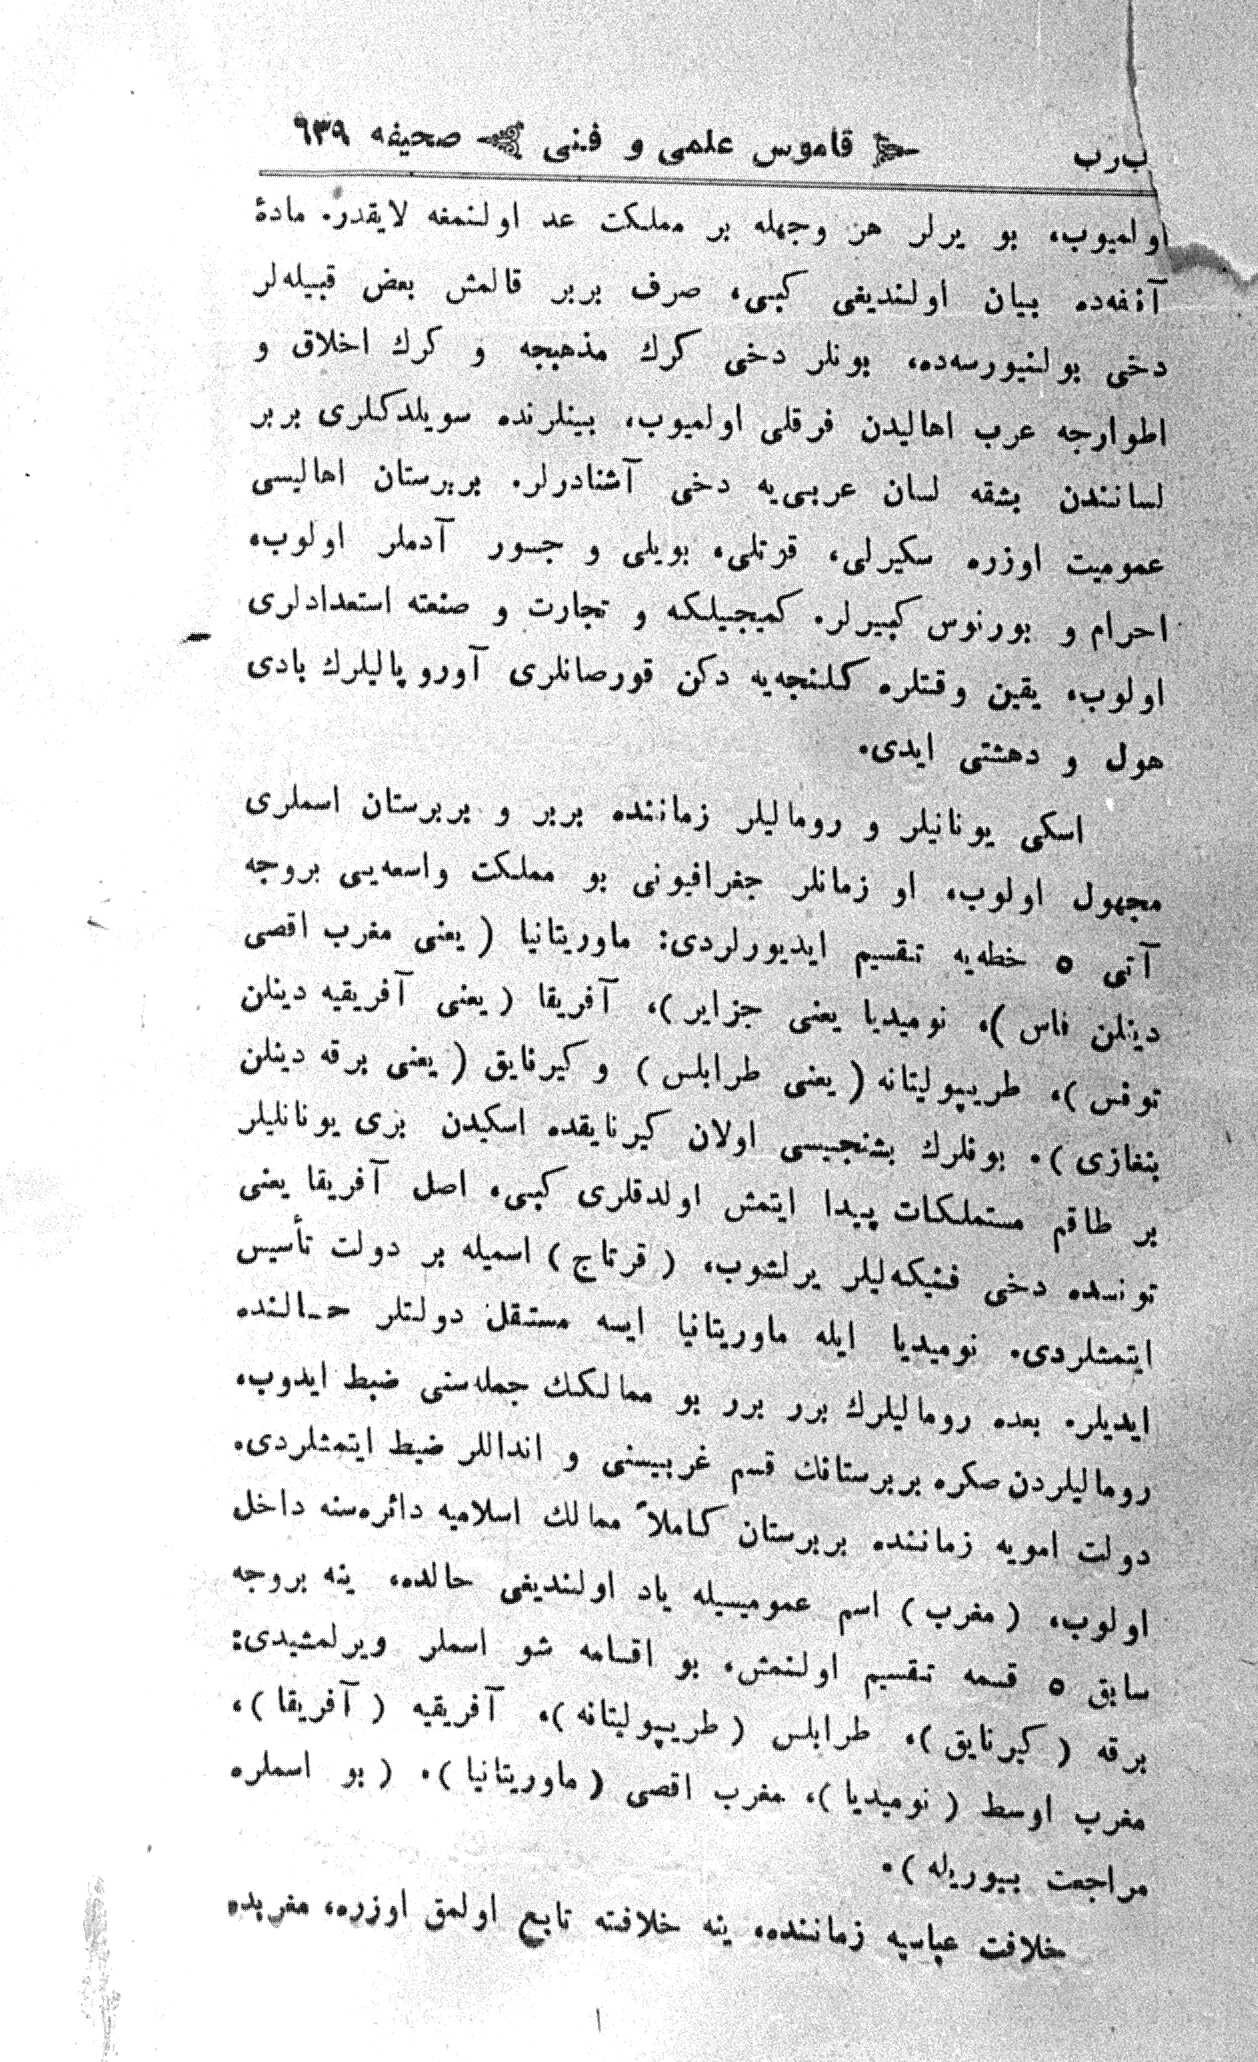 ب‌رب قاموس علمى و فنى صحيفه ٩٣٩
اولميوب، بو يرلر هر وجهله بر مملكت عد اولنمغه لايقدر. مادهٔ
آنفه‌ده بيان اولنديغى كبى، صرف بربر قالمش بعض قبيله‌لر
دخى بولنيورسه‌ده، بونلر دخى كرك مذهبجه و كرك اخلاق و
اطوارجه عرب اهاليدن فرقلى اولميوب، بينلرنده سويلدكلرى بربر
لسانندن بشقه لسان عربى‌يه دخى آشنادرلر. بربرستان اهاليسى
عموميت اوزره سكيرلى، قرتلى، بويلى و جسور آدملر اولوب،
احرام و بورنوس كييرلر. كميجيلكه و تجارت و صنعته استعدادلرى
اولوب، يقين وقتلره كلنجه‌يه دكن قورصانلرى آوروپاليلرك بادى
هول و دهشتى ايدى.
اسكى يونانيلر و روماليلر زماننده بربر و بربرستان اسملرى
مجهول اولوب، او زمانلر جغرافيونى بو مملكت واسعه‌يى بروجه
آتى ٥ خطه‌يه تقسيم ايديورلردى: ماوريتانيا (يعنى مغرب اقصى
دينلن فاس)، نوميديا يعنى جزاير)، آفريقا (يعنى آفريقيه دينلن
تونس)، طريپوليتانه (يعنى طرابلس) و كيرنايق (يعنى برقه دينلن
بنغازى). بونلرك بشنجيسى اولان كيرنايقده اسكيدن برى يونانليلر
بر طاقم مستملكات پيدا ايتمش اولدقلرى كبى، اصل آفريقا يعنى
تونسده دخى فنيكه‌ليلر يرلشوب، (قرتاج) اسميله بر دولت تأسيس
ايتمشلردى. نوميديا ايله ماوريتانيا ايسه مستقل دولتلر حـالنده
ايديلر. بعده روماليلرك برر برر بو ممالكك جمله‌سنى ضبط ايدوب،
روماليلردن صكره بربرستانك قسم غربيسنى و انداللر ضبط ايتمشلردى.
دولت امويه زماننده بربرستان كاملاً ممالك اسلاميه دائره‌سنه داخل
اولوب، (مغرب) اسم عموميسيله ياد اولنديغى حالده، ينه بروجه
سابق ٥ قسمه تقسيم اولنمش، بو اقسامه شو اسملر ويرلمشيدى:
برقه (كيرنايق)، طرابلس (طريپوليتانه)، آفريقيه (آفريقا)،
مغرب اوسط (نوميديا)، مغرب اقصى (ماوريتانيا). (بو اسملره
مراجعت بيوريله).
خلافت عباسيه زماننده، ينه خلافته تابع اولمق اوزره، مغربده